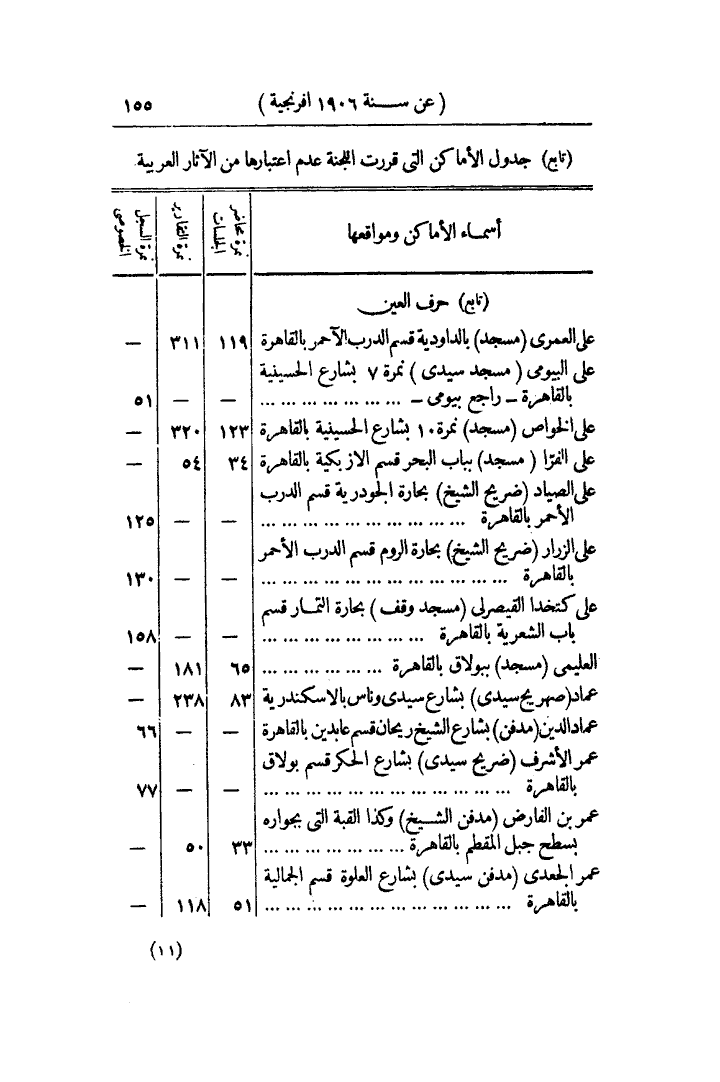 (عن سنة ١٩٠٦ افرنجية) ١٥٥
(تابع) جدول الأماكن التى قررت اللجنة عدم اعتبارها من الآثار العربية.
أسماء الأماكن ومواقعها | نمرة محاضر الجلسات | نمرة التقارير | نمرة السجل الخصوصى
(تابع) حرف العين
على العمرى (مسجد) بالداودية قسم الدرب الأحمر بالقاهرة ١١٩ ٣١١ —
على البيومى (مسجد سيدى) نمرة ٧ بشارع الحسينية
بالقاهرة – راجع بيومى – ... ... ... ... ... ... ... — — ٥١
على الخواص (مسجد) نمرة ١٠ بشارع الحسينية بالقاهرة ١٢٣ ٣٢٠ —
على الفرّا (مسجد) بباب البحر قسم الازبكية بالقاهرة ٣٤ ٥٤ —
على الصياد (ضريح الشيخ) بحارة الجودرية قسم الدرب
الأحمر بالقاهرة ... ... ... ... ... ... ... ... ... ... — — ١٢٥
على الزرار (ضريح الشيخ) بحارة الروم قسم الدرب الأحمر
بالقاهرة ... ... ... ... ... ... ... ... ... ... ... ... — — ١٣٠
على كتخدا القيصرلى (مسجد وقف) بحارة التمار قسم
باب الشعرية بالقاهرة ... ... ... ... ... ... ... ... — — ١٥٨
العليمى (مسجد) ببولاق بالقاهرة ... ... ... ... ... ... ٦٥ ١٨١ —
عماد (صهريج سيدى) بشارع سيدى وناس بالاسكندرية ٨٣ ٢٣٨ —
عماد الدين (مدفن) بشارع الشيخ ريحان قسم عابدين بالقاهرة — — ٦٦
عمر الأشرف (ضريح سيدى) بشارع الحكر قسم بولاق
بالقاهرة ... ... ... ... ... ... ... ... ... ... ... ... — — ٧٧
عمر بن الفارض (مدفن الشيخ) وكذا القبة التى بجواره
بسطح جبل المقطم بالقاهرة ... ... ... ... ... ... ... ٣٣ ٥٠ —
عمر الجعدى (مدفن سيدى) بشارع العلوة قسم الجمالية
بالقاهرة ... ... ... ... ... ... ... ... ... ... ... ... ٥١ ١١٨ —
(١١)